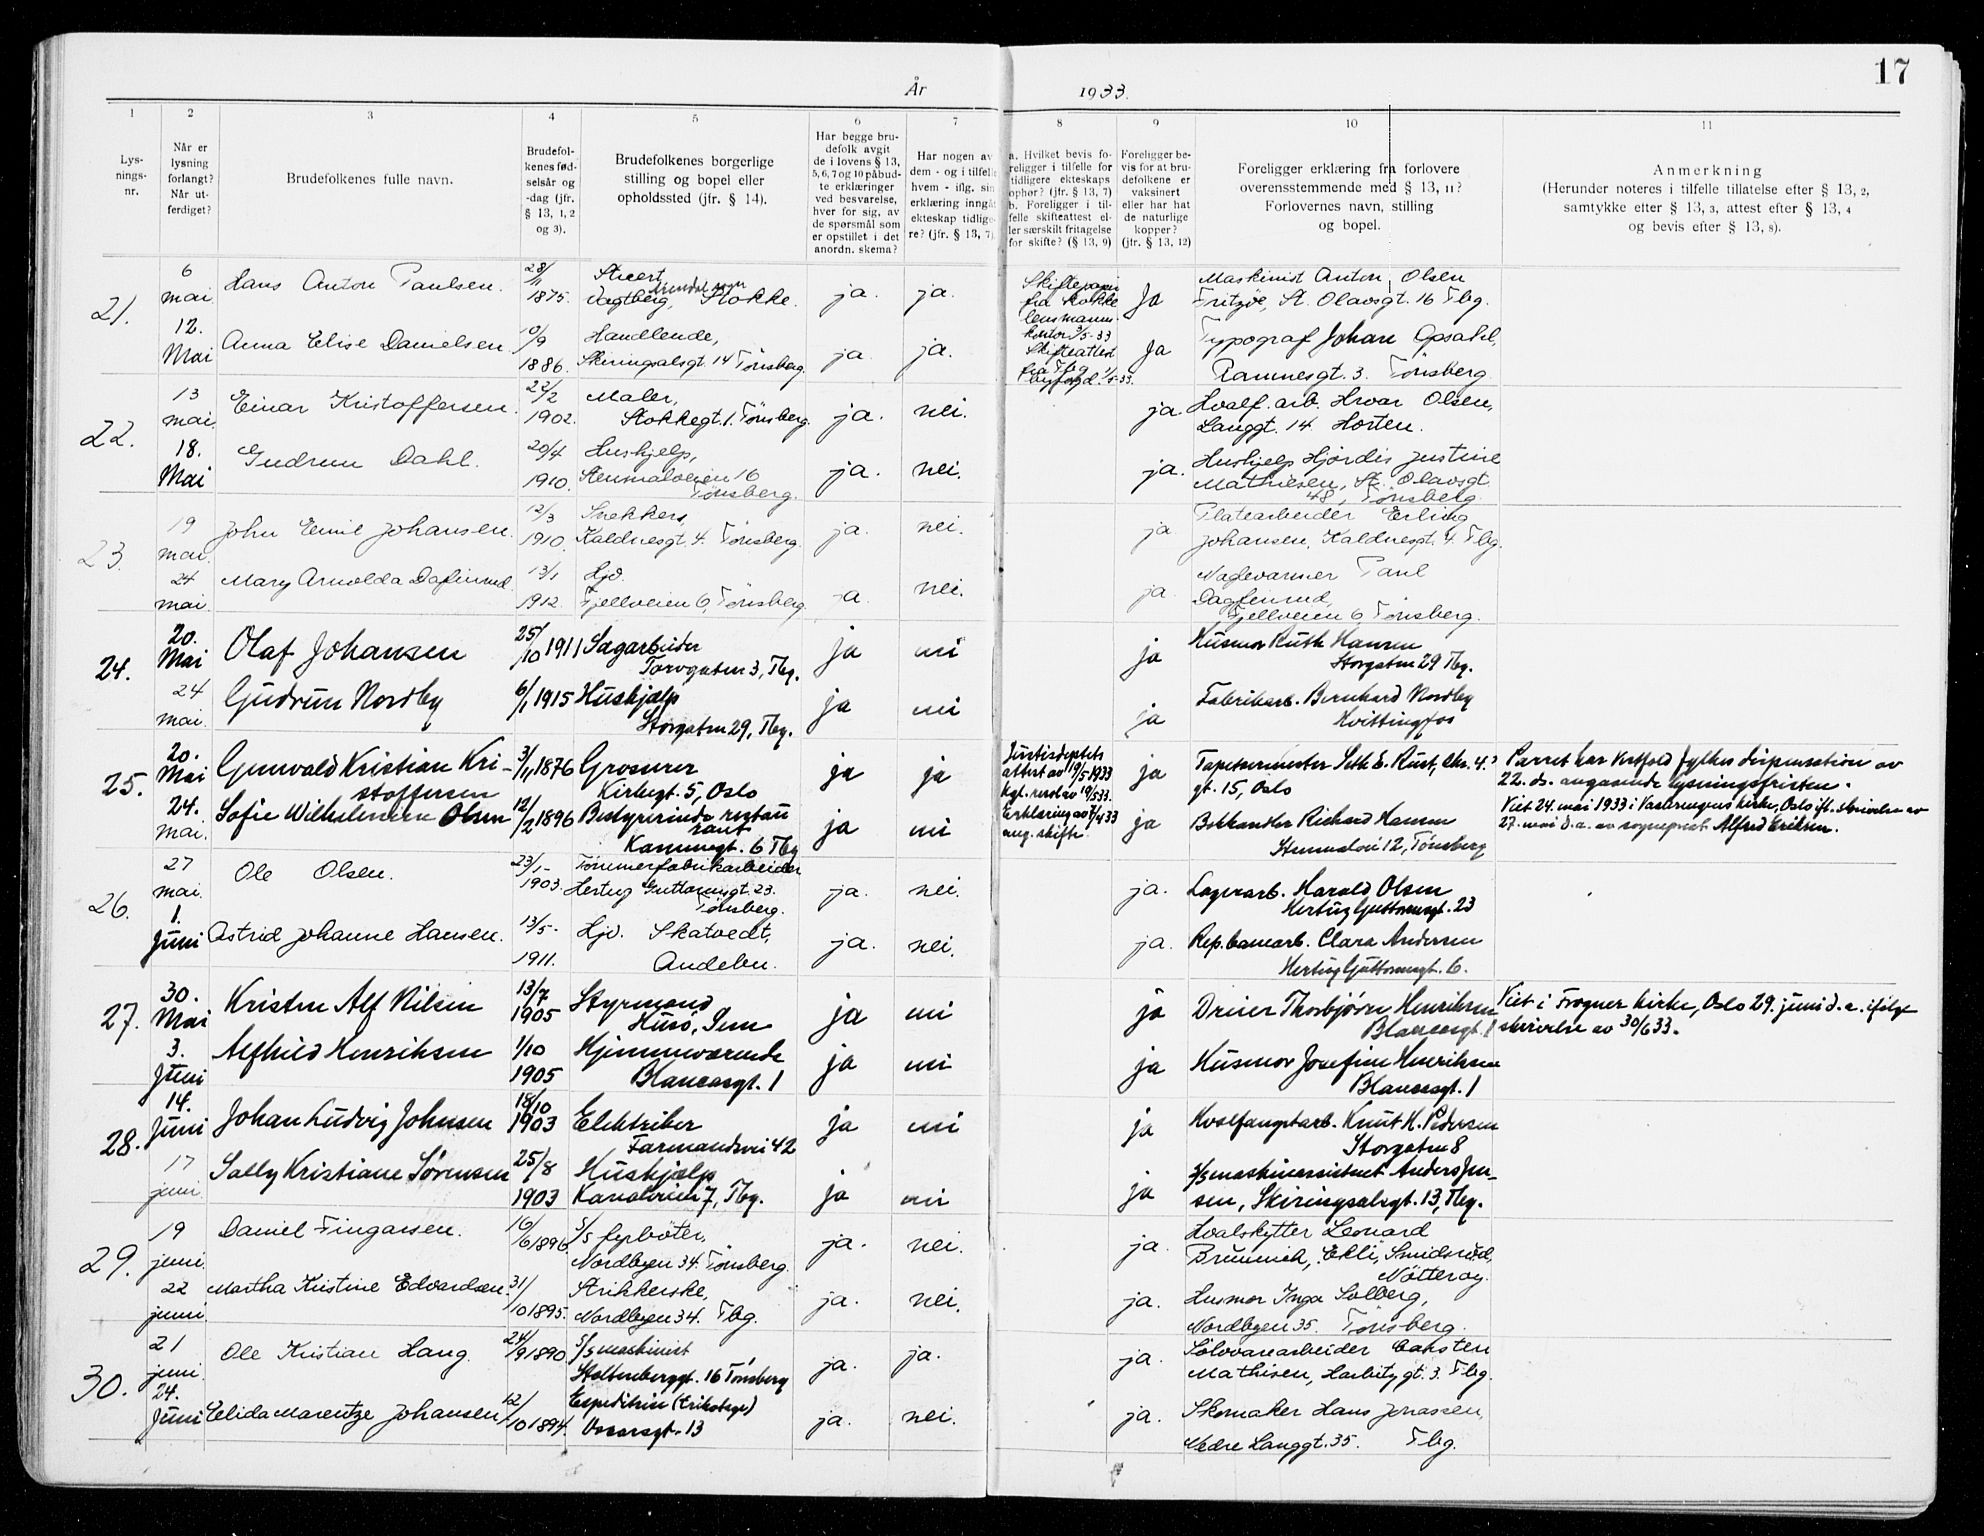 År 1933. 17
1 2 3 4 5 6 7 8 9 10 11
Lys-
nings-
nr.
Når er
lysning
forlangt?
Når ut-
ferdiget?
Brudefolkenes fulle navn.
Brudefol-
kenes fød-
selsår og
-dag (jfr.
§ 13, 1, 2
og 3).
Brudefolkenes borgerlige
stilling og bopel eller
opholdssted (jfr. § 14).
Har begge bru-
defolk avgit
de i lovens § 13,
5, 6, 7 og 10 påbud-
te erklæringer
ved besvarelse,
hver for sig, av
de spørsmål som
er opstillet i det
anordn. skema?
Har nogen av
dem - og i tilfelle
hvem - iflg. sin
erklæring inngåt
ekteskap tidlige-
re? (jfr. § 13, 7)
a. Hvilket bevis fo-
religger i tilfelle for
tidligere ekteskaps
ophør? (jfr. § 13, 7)
b. Foreligger i til-
felle skifteattest el-
ler særskilt fritagelse
for skifte? (§ 13, 9)
Foreligger be-
vis for at bru-
defolkene er
vaksinert
eller har hat
de naturlige
kopper?
(jfr. § 13, 12)
Foreligger erklæring fra forlovere
overensstemmende med § 13, 11?
Forlovernes navn, stilling
og bopel.
Anmerkning
(Herunder noteres i tilfelle tillatelse efter § 13, 2,
samtykke efter § 13, 3, attest efter § 13, 4
og bevis efter § 13, 8).
21.
6 mai
Hans Anton Paulsen.
28/11 1875.
Stuert
Vagtberg, Stokke.
ja. ja.
Skiftepapir
fra Stokke
lensmanns-
kontor 3/5-33
Ja
Maskinist Anton Olsen
Fritzøe, St. Olavsgt. 16 Tbg.
12. Mai
Anna Elise Danielsen
10/9 1886.
Handlende,
Skiringsalsgt. 14 Tønsberg.
ja. ja.
Skifteattest
fra Tbg
byfogd.
Ja
Typograf Johan Opsahl,
Ramnesgt. 3. Tønsberg.
22.
13 mai.
Einar Kristoffersen.
22/2 1902.
Maler,
Stokkegt. 1. Tønsberg.
ja. nei.
ja.
Hvalf. arb. Hroar Olsen,
Langgt. 14 Horten.
18. Mai
Gudrun Dahl.
20/4 1910.
Hushjelp,
Stenmalveien 16
Tønsberg.
ja. nei.
ja.
Hushjelp Hjørdis Justine
Mathiesen, St. Olavsgt
48, Tønsberg.
23.
19 mai.
John Emil Johansen.
12/3 1910.
Snekker,
Kaldnesgt. 4. Tønsberg.
ja nei.
ja
Platearbeider Erling
Johansen, Kaldnesgt. 4. Tbg.
24 mai.
Mary Arnolda Dafinrud.
13/1 1912.
Hjv.
Fjellveien 6, Tønsberg.
ja. nei.
ja.
Naglevarmer Paul
Dagfinrud,
Fjellveien 6 Tønsberg.
24.
20. Mai
Olaf Johansen
25/10 1911
Sagarbeider
Torvgaten 3, Tbg.
ja nei
ja
Husmor Ruth Hansen
Storgaten 29 Tbg.
24 mai.
Gudrun Nordby
6/1 1915
Hushjælp
Storgaten 29, Tbg.
ja nei
ja
Fabrikarb. Bernhard Nordby
Hvittingfos
25.
20. Mai
Gunvald Kristian Kri-
stoffersen
3/11 1876
Grosserer
Kirkegt. 5, Oslo
ja ja
Justisdeptets
attest av 19/5 1933
Kgl. resol av 19/5 33.
ja
Tapetsermester Seth E. Rust, Eks. 4.
gt. 15, Oslo
Parret har Vestfold fylkes dispensation av
22. ds. angaaende lysningsfristen.
24. mai.
Sofie Wilhelmine Olsen
12/2 1896
Bestyrerinde restau
rant
Kammegt. 6 Tbg
ja nei
Erklæring av 7/4 33
ang. skifte
ja
Bokhandler Richard Hansen
Stenmalvei 12, Tønsberg
Viet 24. mai 1933 i Vaalerengens kirke, Oslo ifl. skrivelse av
27. mai d.a. av sogneprest Alfred Eriksen.
26.
27 mai.
Ole Olsen.
23/1- 1903.
Tømmerfabrikarbeider
Hertug Guttormsgt. 23.
Tønsberg.
ja. nei.
ja.
Lagerarb. Harald Olsen
Hertug Guttormsgt. 23
1. Juni
Astrid Johanne Hansen.
13/5- 1911.
Hjv. Skatvedt,
Andebu.
ja. nei.
ja.
Rep. banearb. Clara Andersen
Hertug Guttormsgt. 6.
27.
30. Mai
Kristen Alf Nilsen
13/7 1905
Styrmand
Husø, Sem
ja nei
ja
Dreier Thorbjørn Henriksen
Blancasgt. 1
Viet i Frogner kirke, Oslo 29. juni d.a. ifølge
skrivelse av 30/6 33.
3. Juni
Alfhild Henriksen
1/10 1905
Hjemmeværende
Blancasgt. 1
ja nei
ja
Husmor Josefine Henriksen
Blancasgt. 1
28.
14. Juni
Johan Ludvig Johnsen
18/10 1903
Elektriker
Farmandsvei 42
ja nei
ja
Hvalfangstarb. Knut K. Pedersen
Storgaten 8
17 juni.
Sally Kristiane Sørensen
25/8 1903
Hushjælp
Kanalveien 7, Tbg.
ja nei
ja
S/s maskinassistent Anders Jen-
sen, Skiringsalsgt. 13, Tbg.
29.
19 juni.
Daniel Fingarsen.
16/6 1896.
S/S fyrbøter,
Nordbyen 34. Tønsberg.
ja. nei.
ja.
Hvalskytter Leonard
Brunnich, Ekli, Smidsrød,
Nøtterøy.
22 juni.
Martha Kristine Edvardsen.
31/10 1895.
Strikkerske,
Nordbyen 34. Tbg.
ja. nei.
ja.
Husmor Inga Solberg,
Nordbyen 35. Tønsberg.
30.
21 juni.
Ole Kristian Haug.
24/9 1890
S/S maskinist
Stoltenberggt. 16 Tønsberg
ja. ja.
ja.
Sølvvarearbeider Carsten
Mathisen, Harbitzgt. 3. Tbg.
24. Juni
Elida Marentze Johansen
12/10 1894.
Expeditrise (trikotage)
Ossorsgt. 13
ja. nei.
ja.
Skomaker Hans Jonassen,
Nedre Langgt. 35. Tbg.